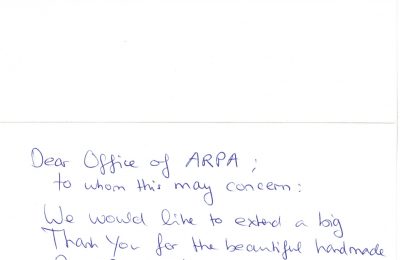 Dear Office of ARPA ;
to whom this may concern :
We would like to extend a big
Thank You for the beautiful handmade